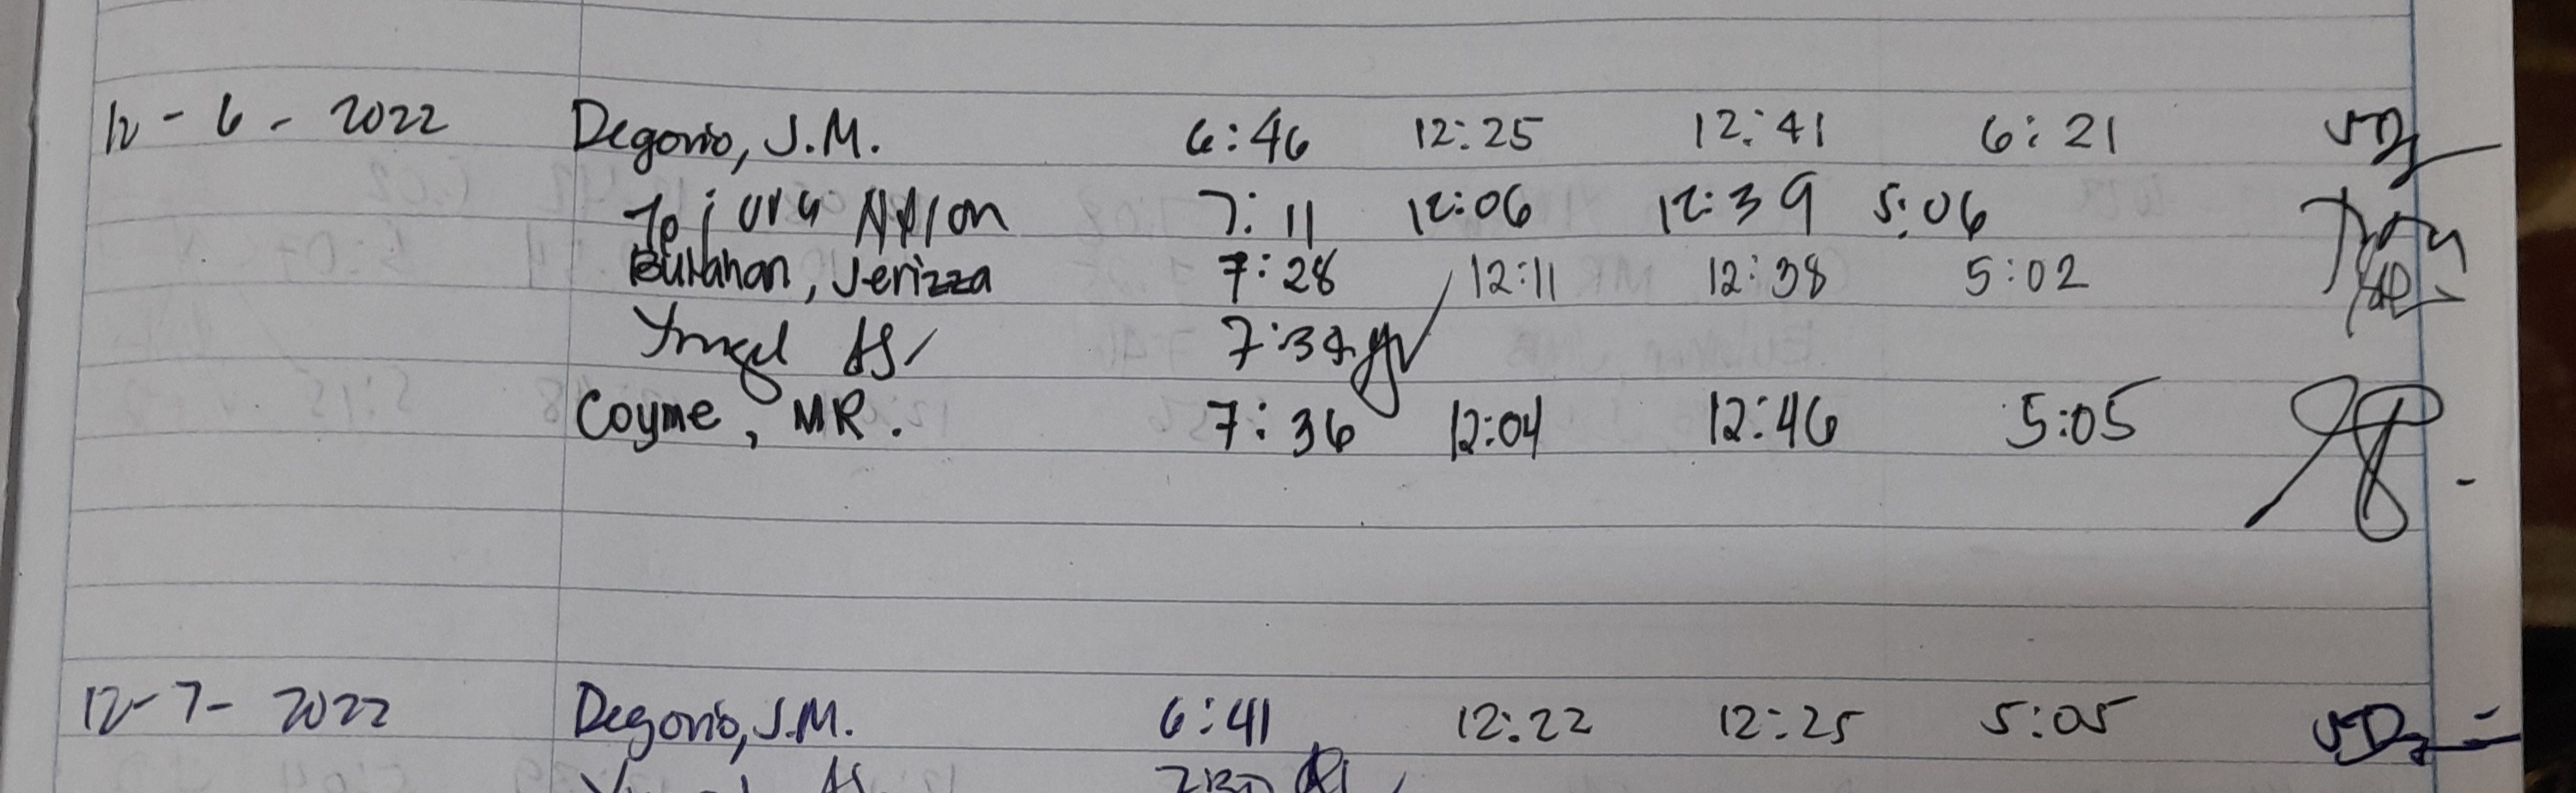 12 - 6 - 2022 Degorio, J.M. 6:46 12:25 12:41 6:21
7:11 12:06 12:39 5:06
Bulahan, Jerizza 7:28 12:11 12:38 5:02
7:34
Coyme, MR. 7:36 12:04 12:46 5:05
12-7-2022 Degorio, J.M. 6:41 12:22 12:25 5:05